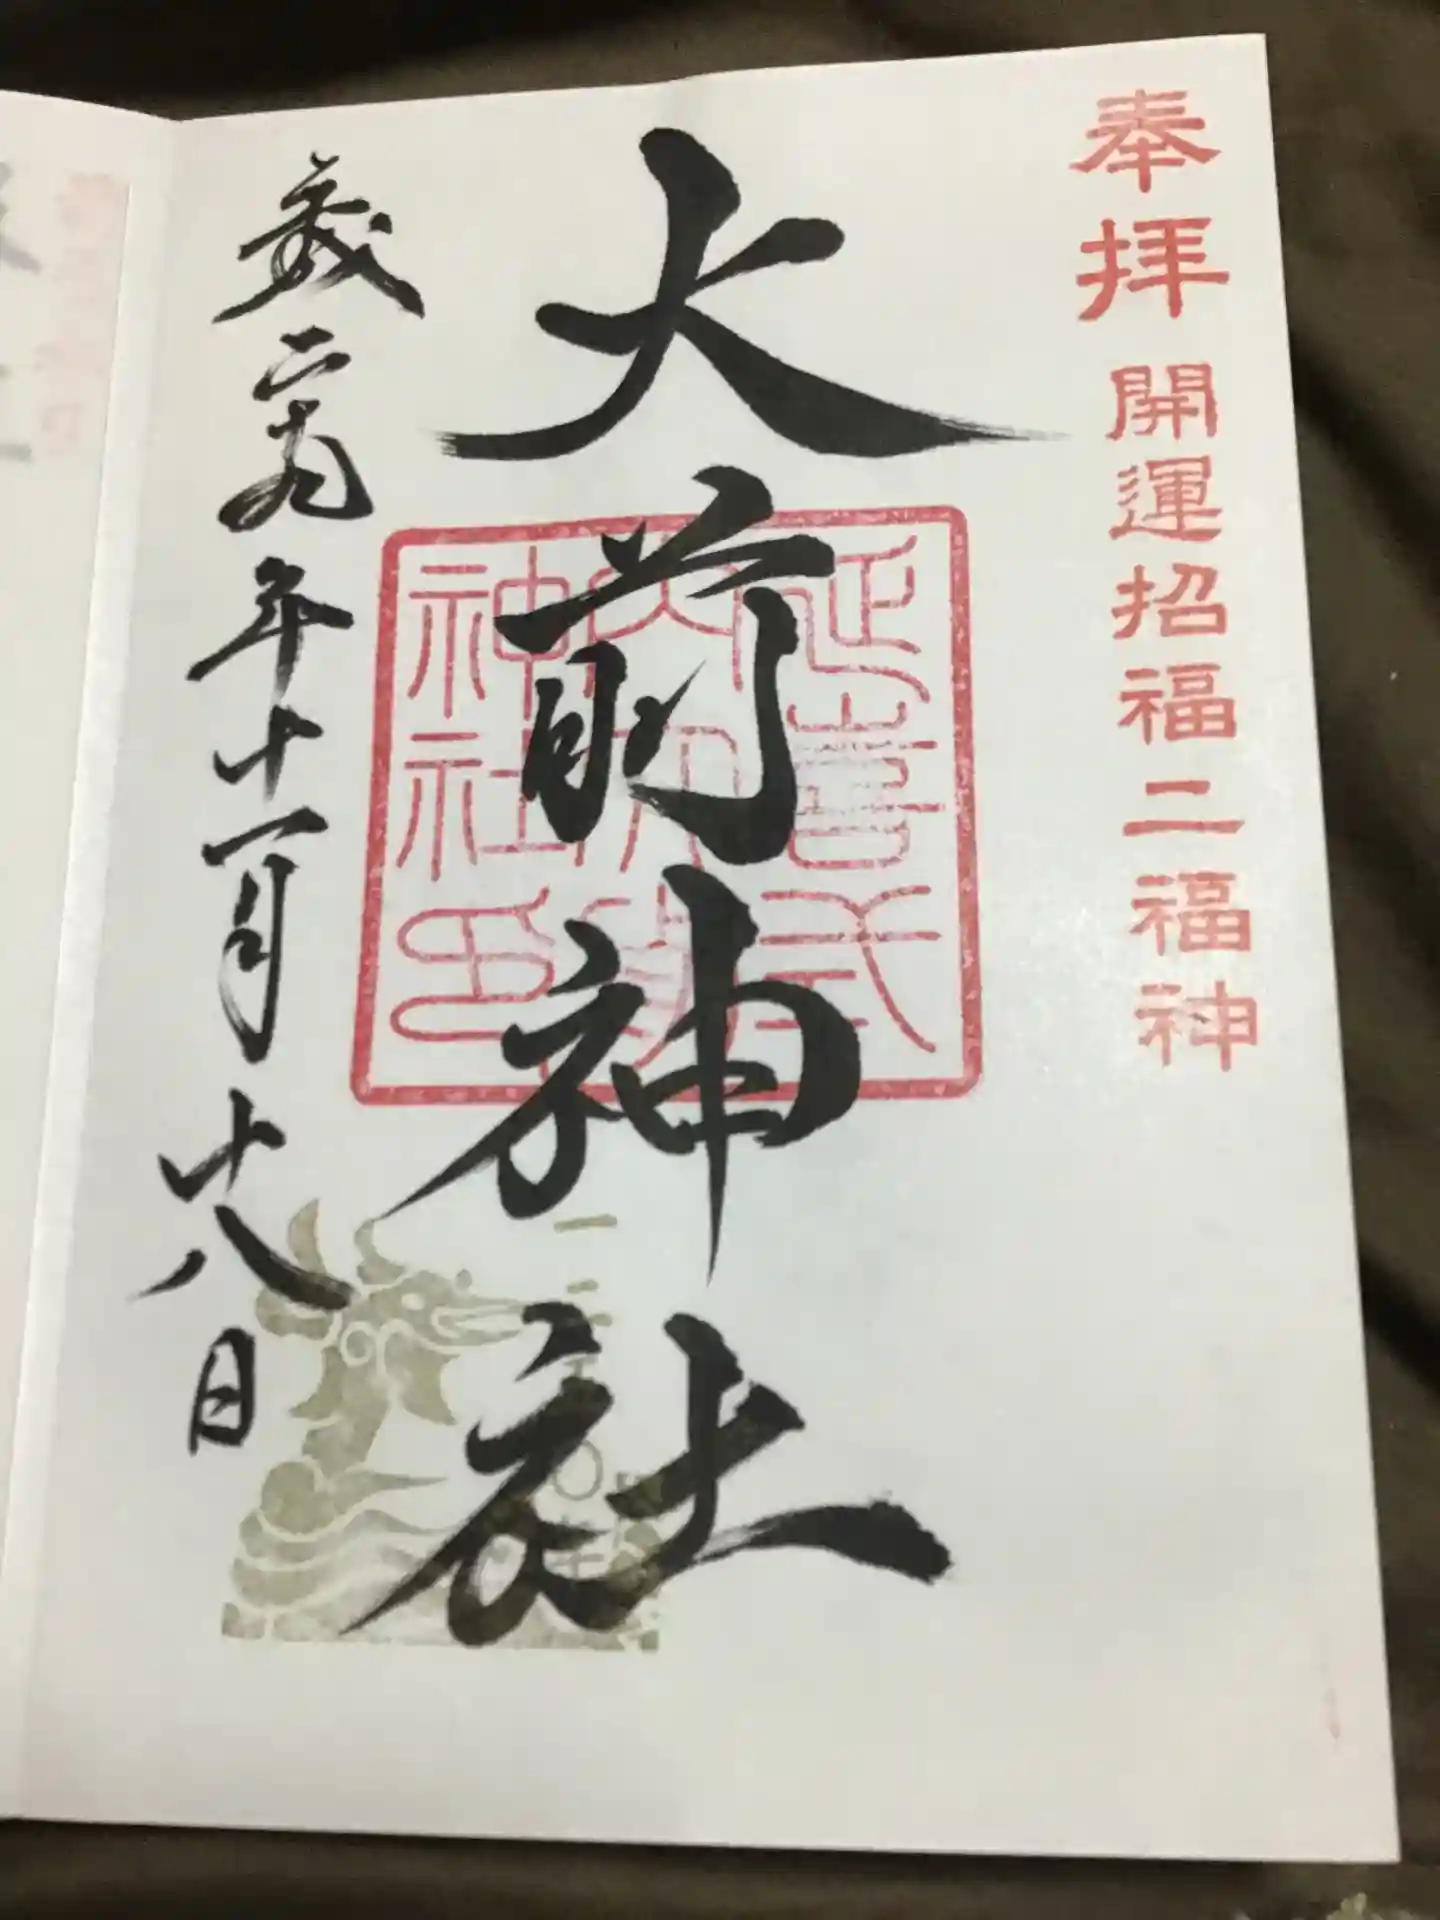 奉拝 開運招福二福神
大前神社
延喜式
内大前
神社印
歳二十九年十一月十八日